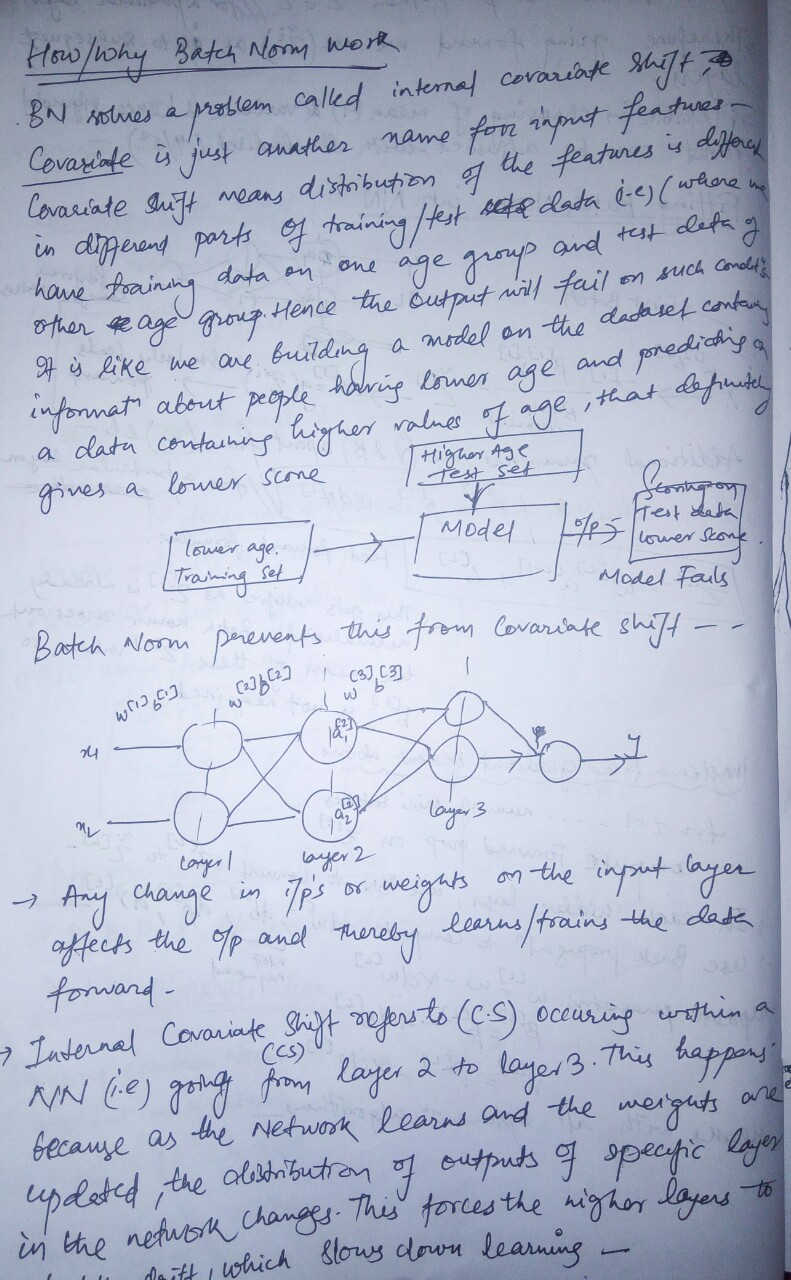 How/why Batch Norm work
BN solves a problem called internal covariate shift,
Covariate is just anather name for input features-
Covariate Shift means distribution of the features is different
in different parts of training/test data (i-e) (where we
have training data on one age group and test data of
other age group. Hence the output will fail on such
It is like we are building a model on the dataset
informatn about people having lower age and predicting on
a data containing higher values of age, that definitely
gives a lower score
Higher Age
Test set
Lower age.
Training Set
Model
o/p
Scoring on
Test data
lower Score.
Model Fails
Batch Norm prevents this from Covariate shift --
w[1] b[1]
w[2] b[2]
w[3] b[3]
x1
a1[2]
y
x2
a2[2]
layer 1
layer 2
layer 3
→ Any change in i/p's or weights on the input layer
affects the o/p and thereby learns/trains the data
forward-
→ Internal Covariate Shift refers to (C.S) occuring within a
(CS)
N/N (i.e) going from layer 2 to layer 3. This happens
because as the Network learns and the weights are
updated, the distribution of outputs of specific layer
in the network changes. This forces the higher layers to
drift, which slows down learning -